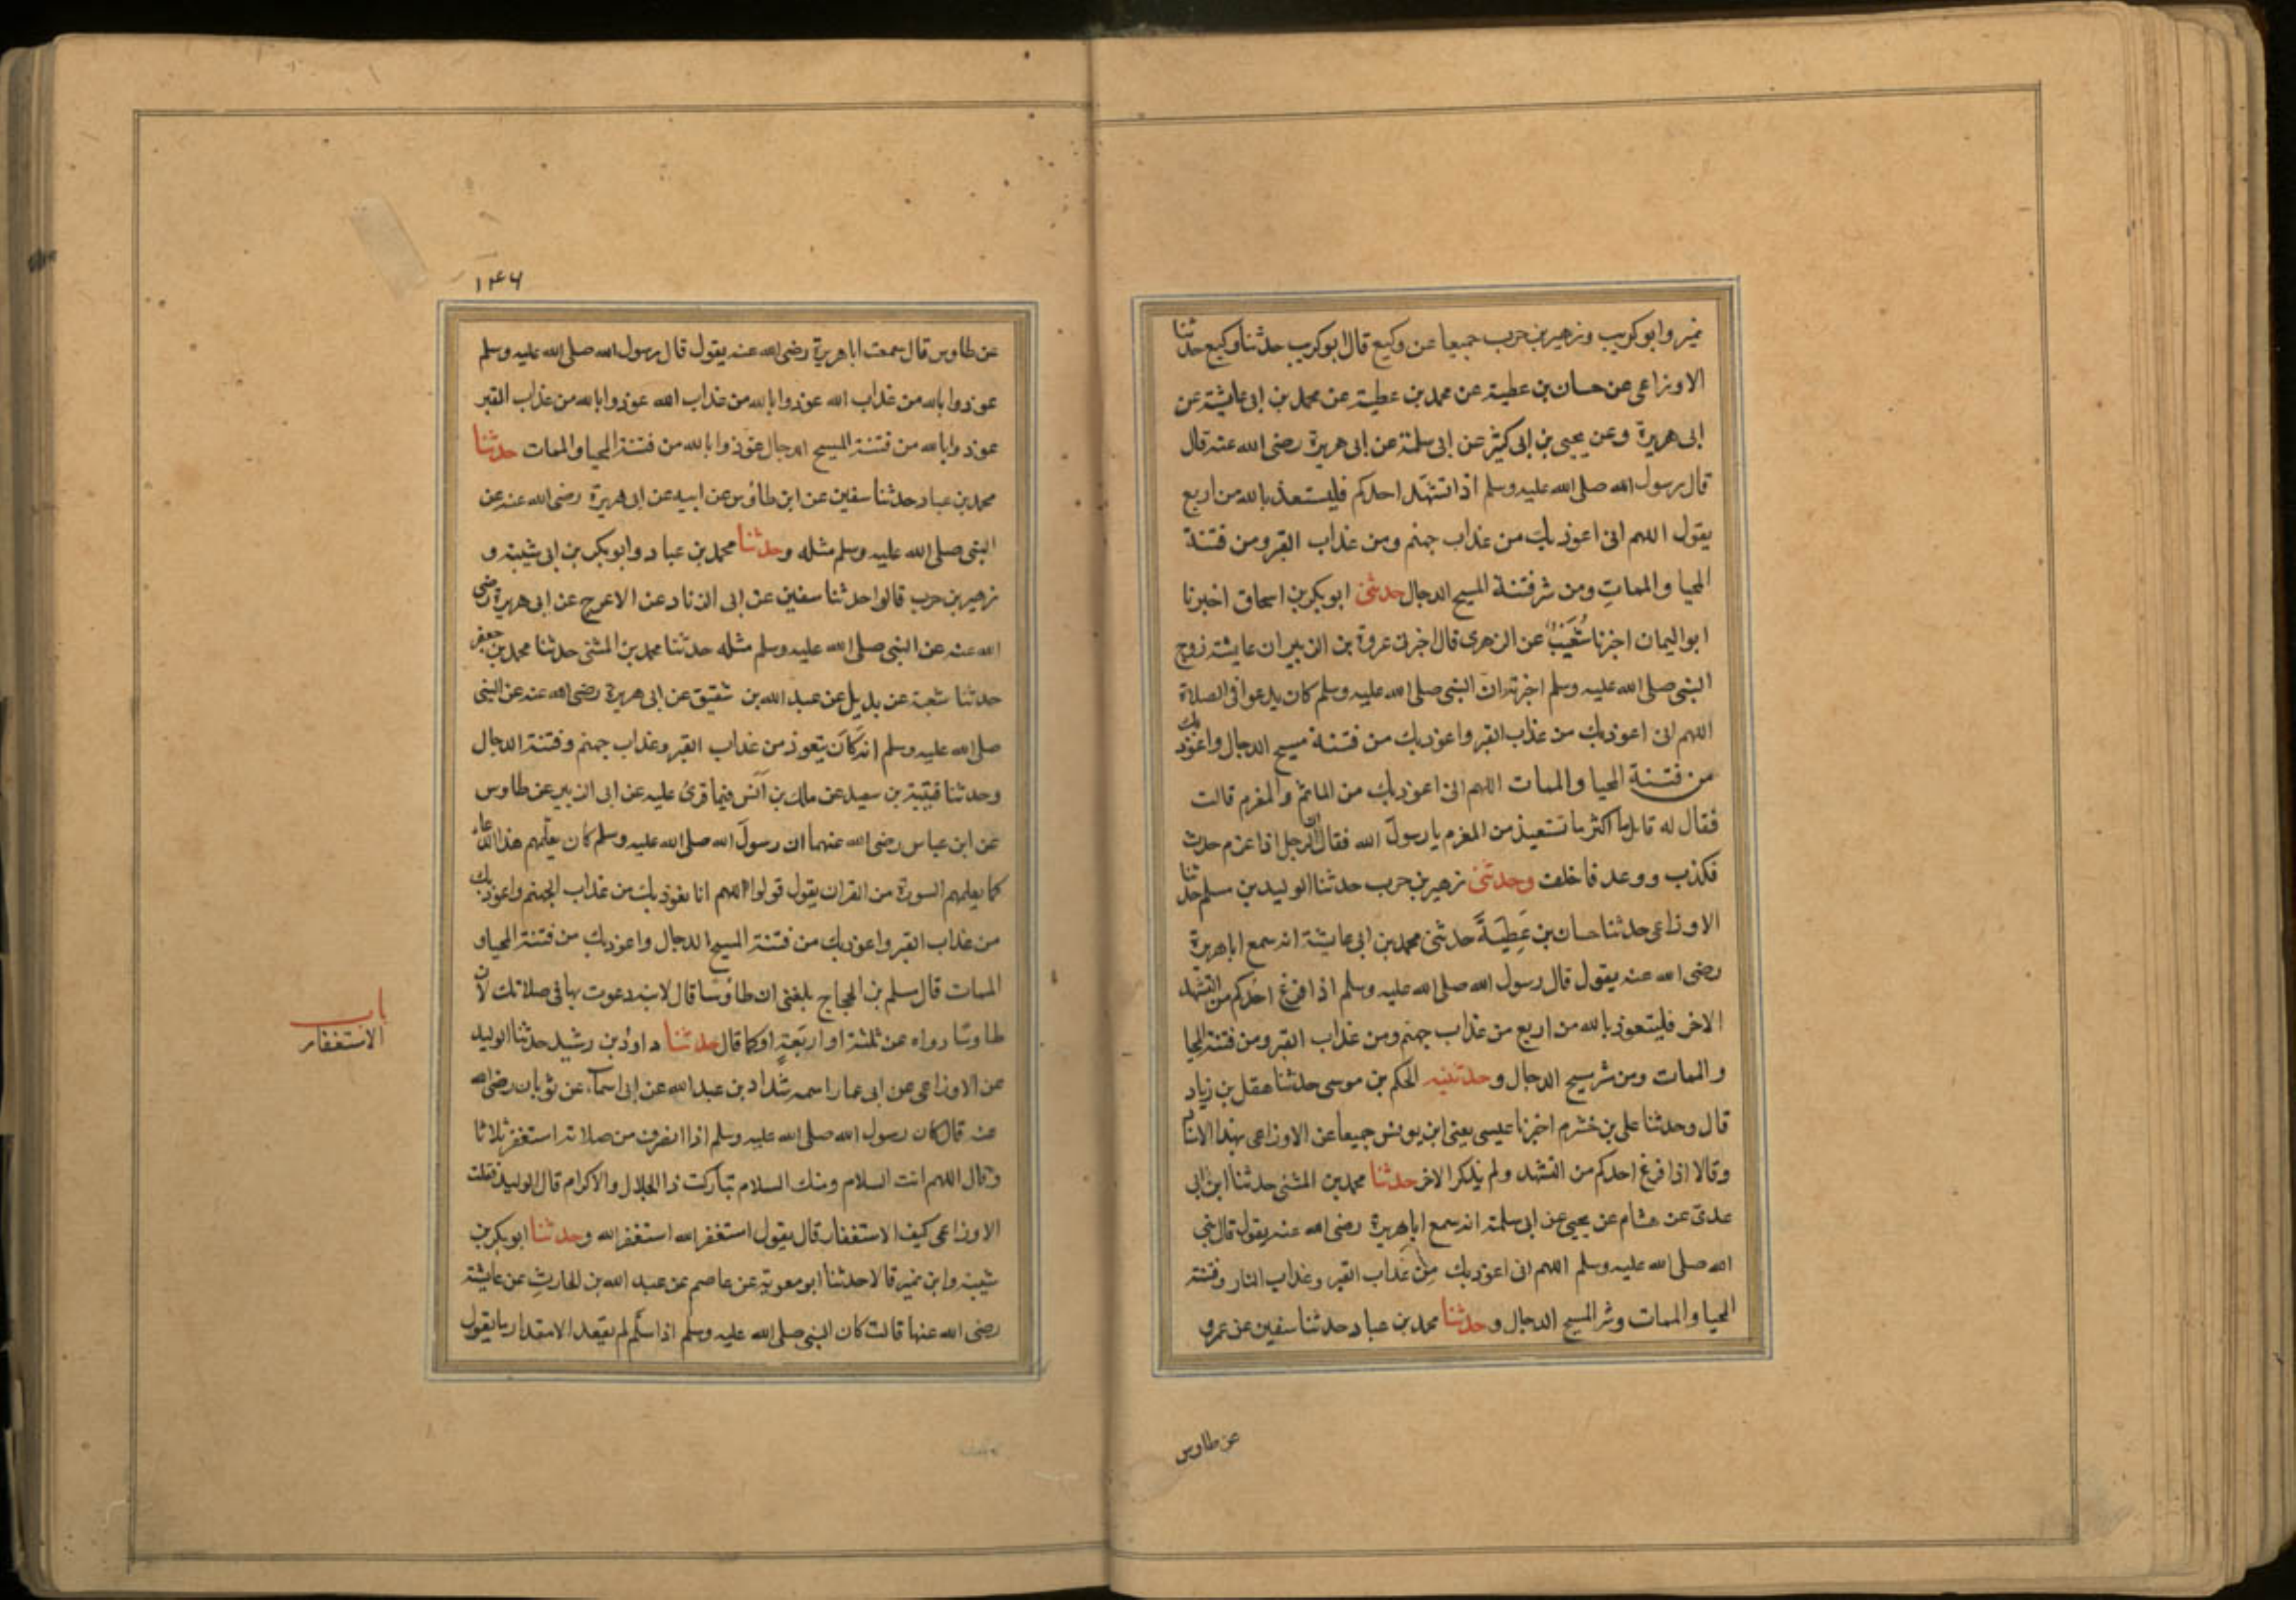 نمير وابو كريب وزهير بن حرب جميعا عن وكيع قال ابو كريب حدثنا وكيع حدثنا
الاوزاعى عن حسان بن عطية عن محمد بن عطية عن محمد بن ابى عايشة عن
ابى هريرة وعن يحيى بن ابى كثير عن ابى سلمة عن ابى هريرة رضى الله عنه قال
قال رسول الله صلى الله عليه وسلم اذا تشهد احدكم فليستعذ بالله من اربع
يقول اللهم انى اعوذ بك من عذاب جهنم ومن عذاب القبر ومن فتنة
المحيا والممات ومن شر فتنة المسيح الدجال حدثنى ابو بكر بن اسحاق اخبرنا
ابو اليمان اخبرنا شعيب عن الزهرى قال اخبرنى عروة بن الزبير ان عايشة زوج
النبى صلى الله عليه وسلم اخبرته ان النبى صلى الله عليه وسلم كان يدعوا فى الصلاة
اللهم انى اعوذ بك من عذاب القبر واعوذ بك من فتنة مسيح الدجال واعوذ بك
من فتنة المحيا والممات اللهم انى اعوذ بك من الماثم والمغرم قالت
فقال له قايل ما اكثر ما تستعيذ من المغرم يا رسول الله فقال ان الرجل اذا غرم حدث
فكذب ووعد فاخلف وحدثنى زهير بن حرب حدثنا الوليد بن مسلم حدثنا
الاوزاعى حدثنا حسان بن عطية حدثنى محمد بن ابى عايشة انه سمع ابا هريرة
رضى الله عنه يقول قال رسول الله صلى الله عليه وسلم اذا فرغ احدكم من التشهد
الاخر فليتعوذ بالله من اربع من عذاب جهنم ومن عذاب القبر ومن فتنة المحيا
والممات ومن شر مسيح الدجال وحدثنيه الحكم بن موسى حدثنا هقل بن زياد
قال وحدثنا على بن خشرم اخبرنا عيسى يعنى ابن يونس جميعا عن الاوزاعى بهذا الاسناد
وقالا اذا فرغ احدكم من التشهد ولم يذكر الاخر حدثنا محمد بن المثنى حدثنا ابن ابى
عدى عن هشام عن يحيى عن ابى سلمة انه سمع ابا هريرة رضى الله عنه يقول قال نبى
الله صلى الله عليه وسلم اللهم انى اعوذ بك من عذاب القبر وعذاب النار وفتنة
المحيا والممات وشر المسيح الدجال وحدثنا محمد بن عباد حدثنا سفين عن عمرو
عن طاوس
١٤٦
عن طاوس قال سمعت ابا هريرة رضى الله عنه يقول قال رسول الله صلى الله عليه وسلم
عوذوا بالله من عذاب الله عوذوا بالله من عذاب الله عوذوا بالله من عذاب القبر
عوذوا بالله من فتنة المسيح الدجال عوذوا بالله من فتنة المحيا والممات حدثنا
محمد بن عباد حدثنا سفين عن ابن طاوس عن ابيه عن ابى هريرة رضى الله عنه عن
النبى صلى الله عليه وسلم مثله وحدثنا محمد بن عباد وابو بكر بن ابى شيبة و
زهير بن حرب قالوا حدثنا سفين عن ابى الزناد عن الاعرج عن ابى هريرة رضى
الله عنه عن النبى صلى الله عليه وسلم مثله حدثنا محمد بن المثنى حدثنا محمد بن جعفر
حدثنا شعبة عن بديل عن عبد الله بن شقيق عن ابى هريرة رضى الله عنه عن النبى
صلى الله عليه وسلم انه كان يتعوذ من عذاب القبر وعذاب جهنم وفتنة الدجال
وحدثنا قتيبة بن سعيد عن مالك بن انس فيما قرئ عليه عن ابى الزبير عن طاوس
عن ابن عباس رضى الله عنهما ان رسول الله صلى الله عليه وسلم كان يعلمهم هذا الدعاء
كما يعلمهم السورة من القران يقول قولوا اللهم انا نعوذ بك من عذاب الجهنم واعوذ بك
من عذاب القبر واعوذ بك من فتنة المسيح الدجال واعوذ بك من فتنة المحيا و
الممات قال مسلم بن الحجاج بلغنى ان طاوسا قال لابنه دعوت بها فى صلاتك لان
طاوسا رواه عن ثلثة او اربعة او كما قال حدثنا داود بن رشيد حدثنا الوليد
عن الاوزاعى عن ابى عمار اسمه شداد بن عبد الله عن ابى اسماء عن ثوبان رضى الله
عنه قال كان رسول الله صلى الله عليه وسلم اذا انصرف من صلاته استغفر ثلاثا
وقال اللهم انت السلام ومنك السلام تباركت ذا الجلال والاكرام قال الوليد فقلت
الاوزاعى كيف الاستغفار قال يقول استغفر الله استغفر الله وحدثنا ابو بكر بن
شيبة وابن نمير قالا حدثنا ابو معوية عن عاصم عن عبد الله بن الحارث عن عايشة
رضى الله عنها قالت كان النبى صلى الله عليه وسلم اذا سلم لم يقعد الا مقدار ما يقول
باب
الاستغفار